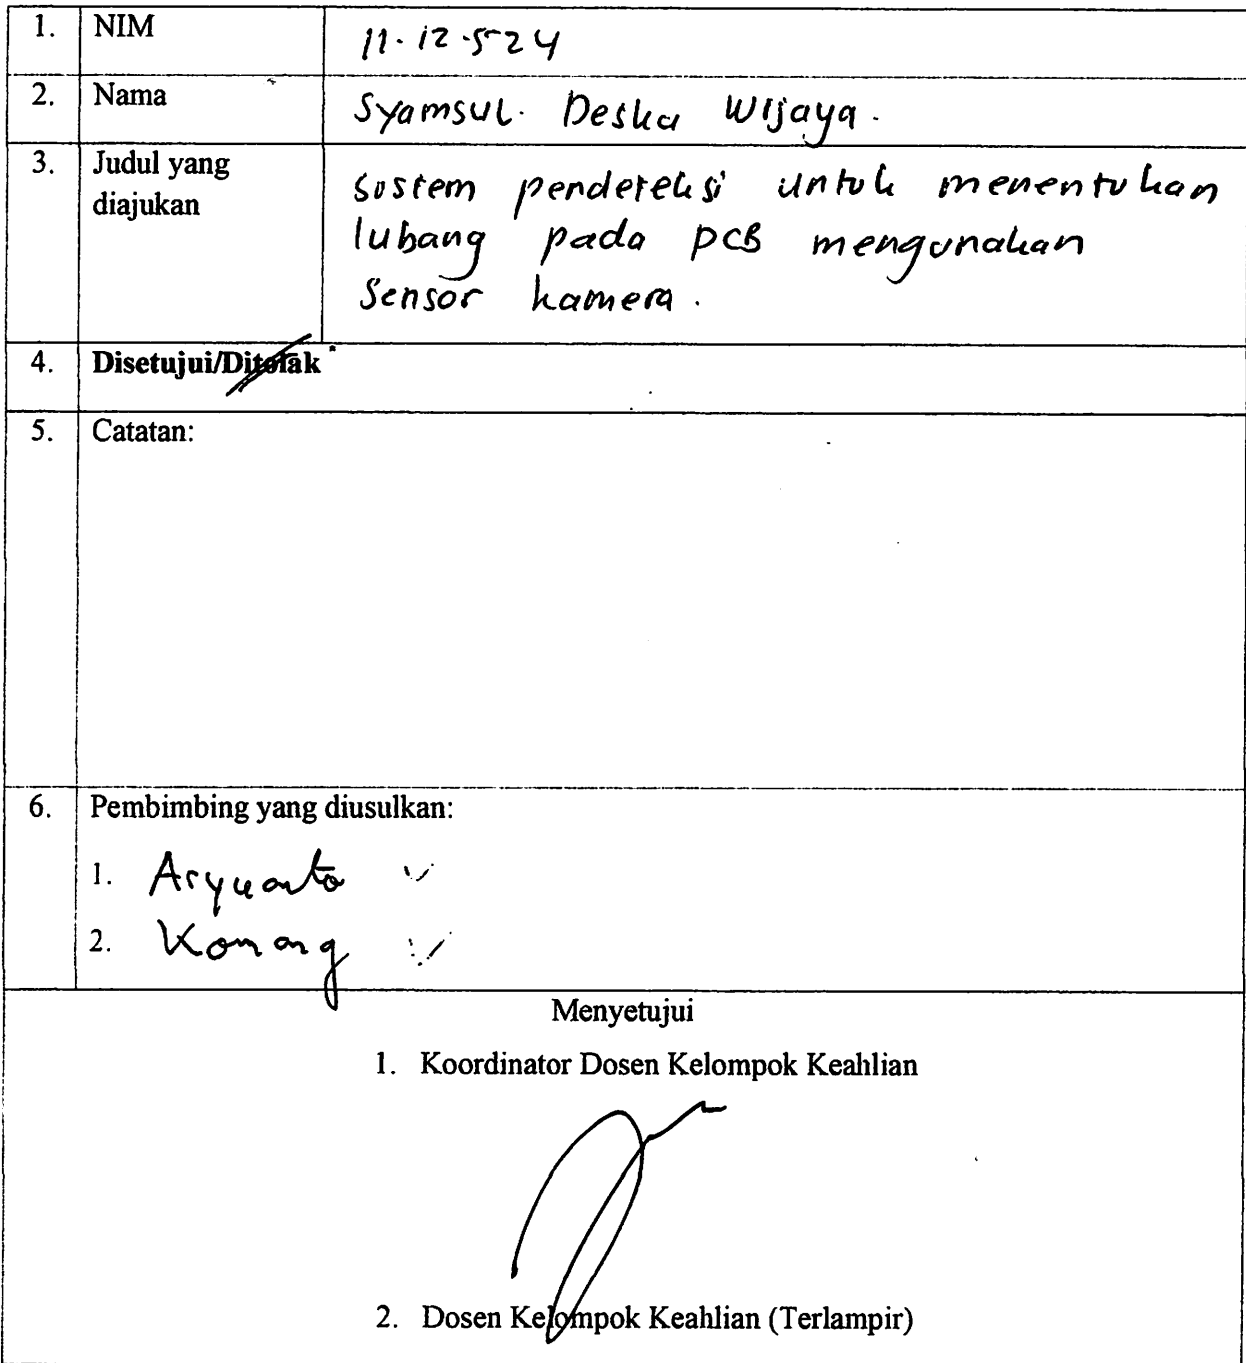 1. NIM 11.12.524
2. Nama Syamsul. Deska Wijaya.
3. Judul yang diajukan
Sistem pendeteksi untuk menentukan
lubang pada PCB mengunakan
Sensor kamera.
4. Disetujui/Ditolak *
5. Catatan:
6. Pembimbing yang diusulkan:
1. Aryuanto
2. Komang
Menyetujui
1. Koordinator Dosen Kelompok Keahlian
2. Dosen Kelompok Keahlian (Terlampir)